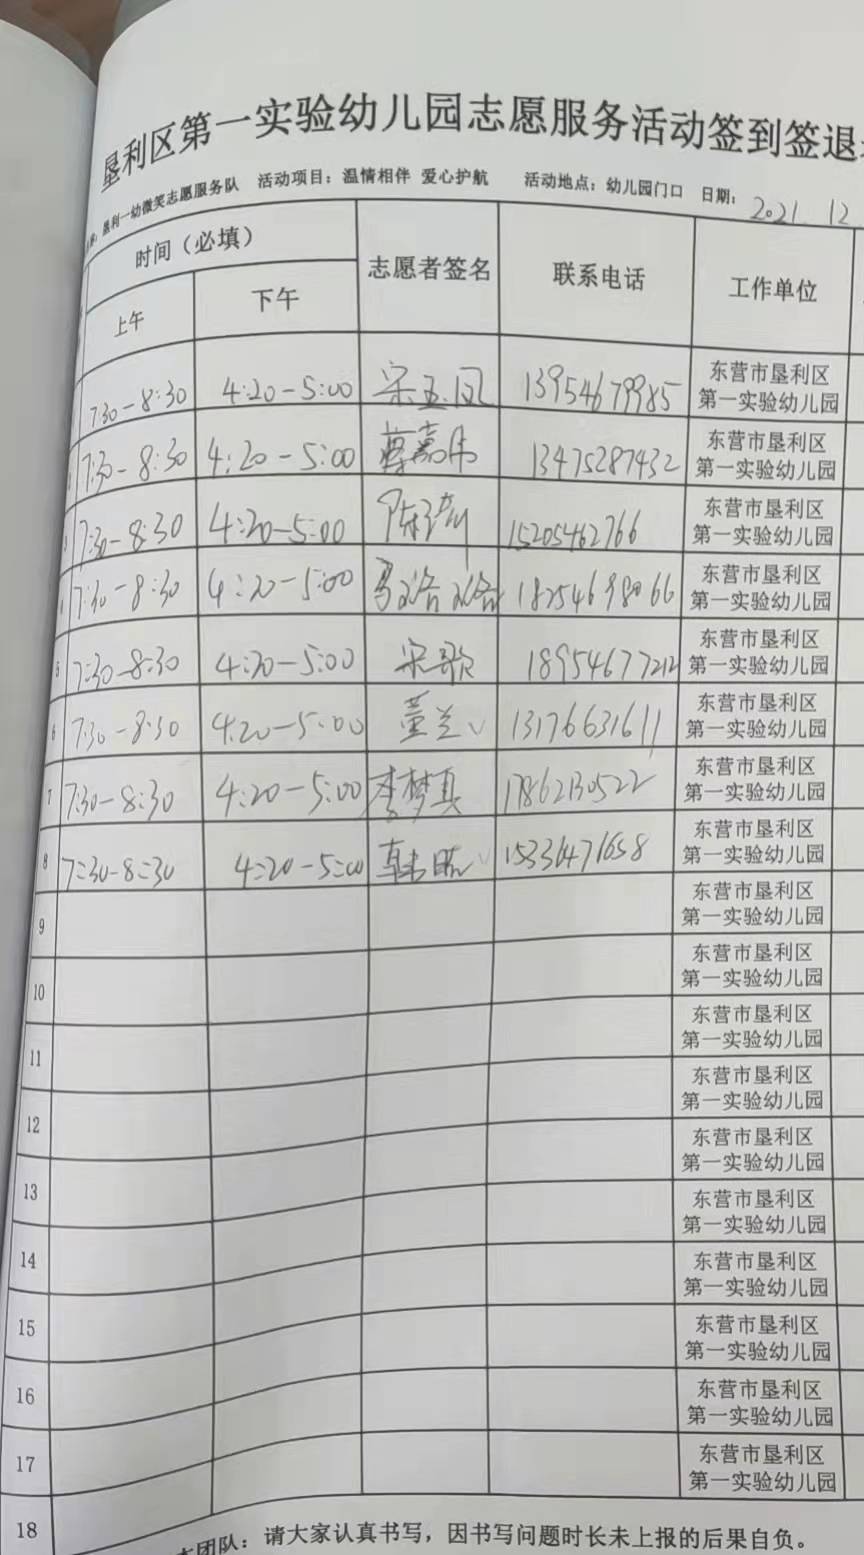 垦利区第一实验幼儿园志愿服务活动签到签退
垦利一幼微笑志愿服务队 活动项目：温情相伴 爱心护航 活动地点：幼儿园门口 日期： 2021 12
时间（必填） 志愿者签名 联系电话 工作单位
上午 下午
7:30-8:30 4:20-5:00 宋玉凤 13954679985 东营市垦利区
第一实验幼儿园
7:30-8:30 4:20-5:00 13475287432 东营市垦利区
第一实验幼儿园
3 7:30-8:30 4:20-5:00 15205462766 东营市垦利区
第一实验幼儿园
4 7:30-8:30 4:20-5:00 18254698066 东营市垦利区
第一实验幼儿园
5 7:30-8:30 4:20-5:00 宋歌 18954677212 东营市垦利区
第一实验幼儿园
6 7:30-8:30 4:20-5:00 董兰 13176631611 东营市垦利区
第一实验幼儿园
7 7:30-8:30 4:20-5:00 李梦真 17862130522 东营市垦利区
第一实验幼儿园
8 7:30-8:30 4:20-5:00 韩 15336471658 东营市垦利区
第一实验幼儿园
9 东营市垦利区
第一实验幼儿园
10 东营市垦利区
第一实验幼儿园
11 东营市垦利区
第一实验幼儿园
12 东营市垦利区
第一实验幼儿园
13 东营市垦利区
第一实验幼儿园
14 东营市垦利区
第一实验幼儿园
15 东营市垦利区
第一实验幼儿园
16 东营市垦利区
第一实验幼儿园
17 东营市垦利区
第一实验幼儿园
18
团队：请大家认真书写，因书写问题时长未上报的后果自负。